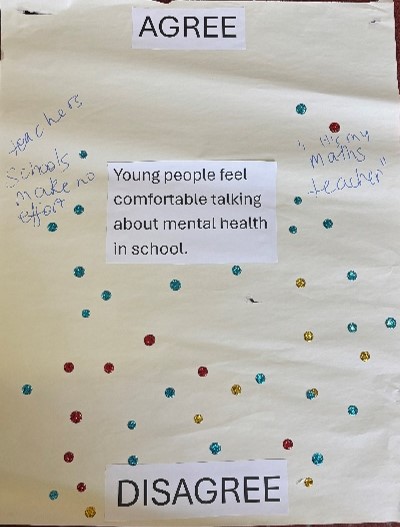 AGREE
teachers
Schools
make no
effort
"It's my
maths
teacher"
Young people feel
comfortable talking
about mental health
in school.
DISAGREE